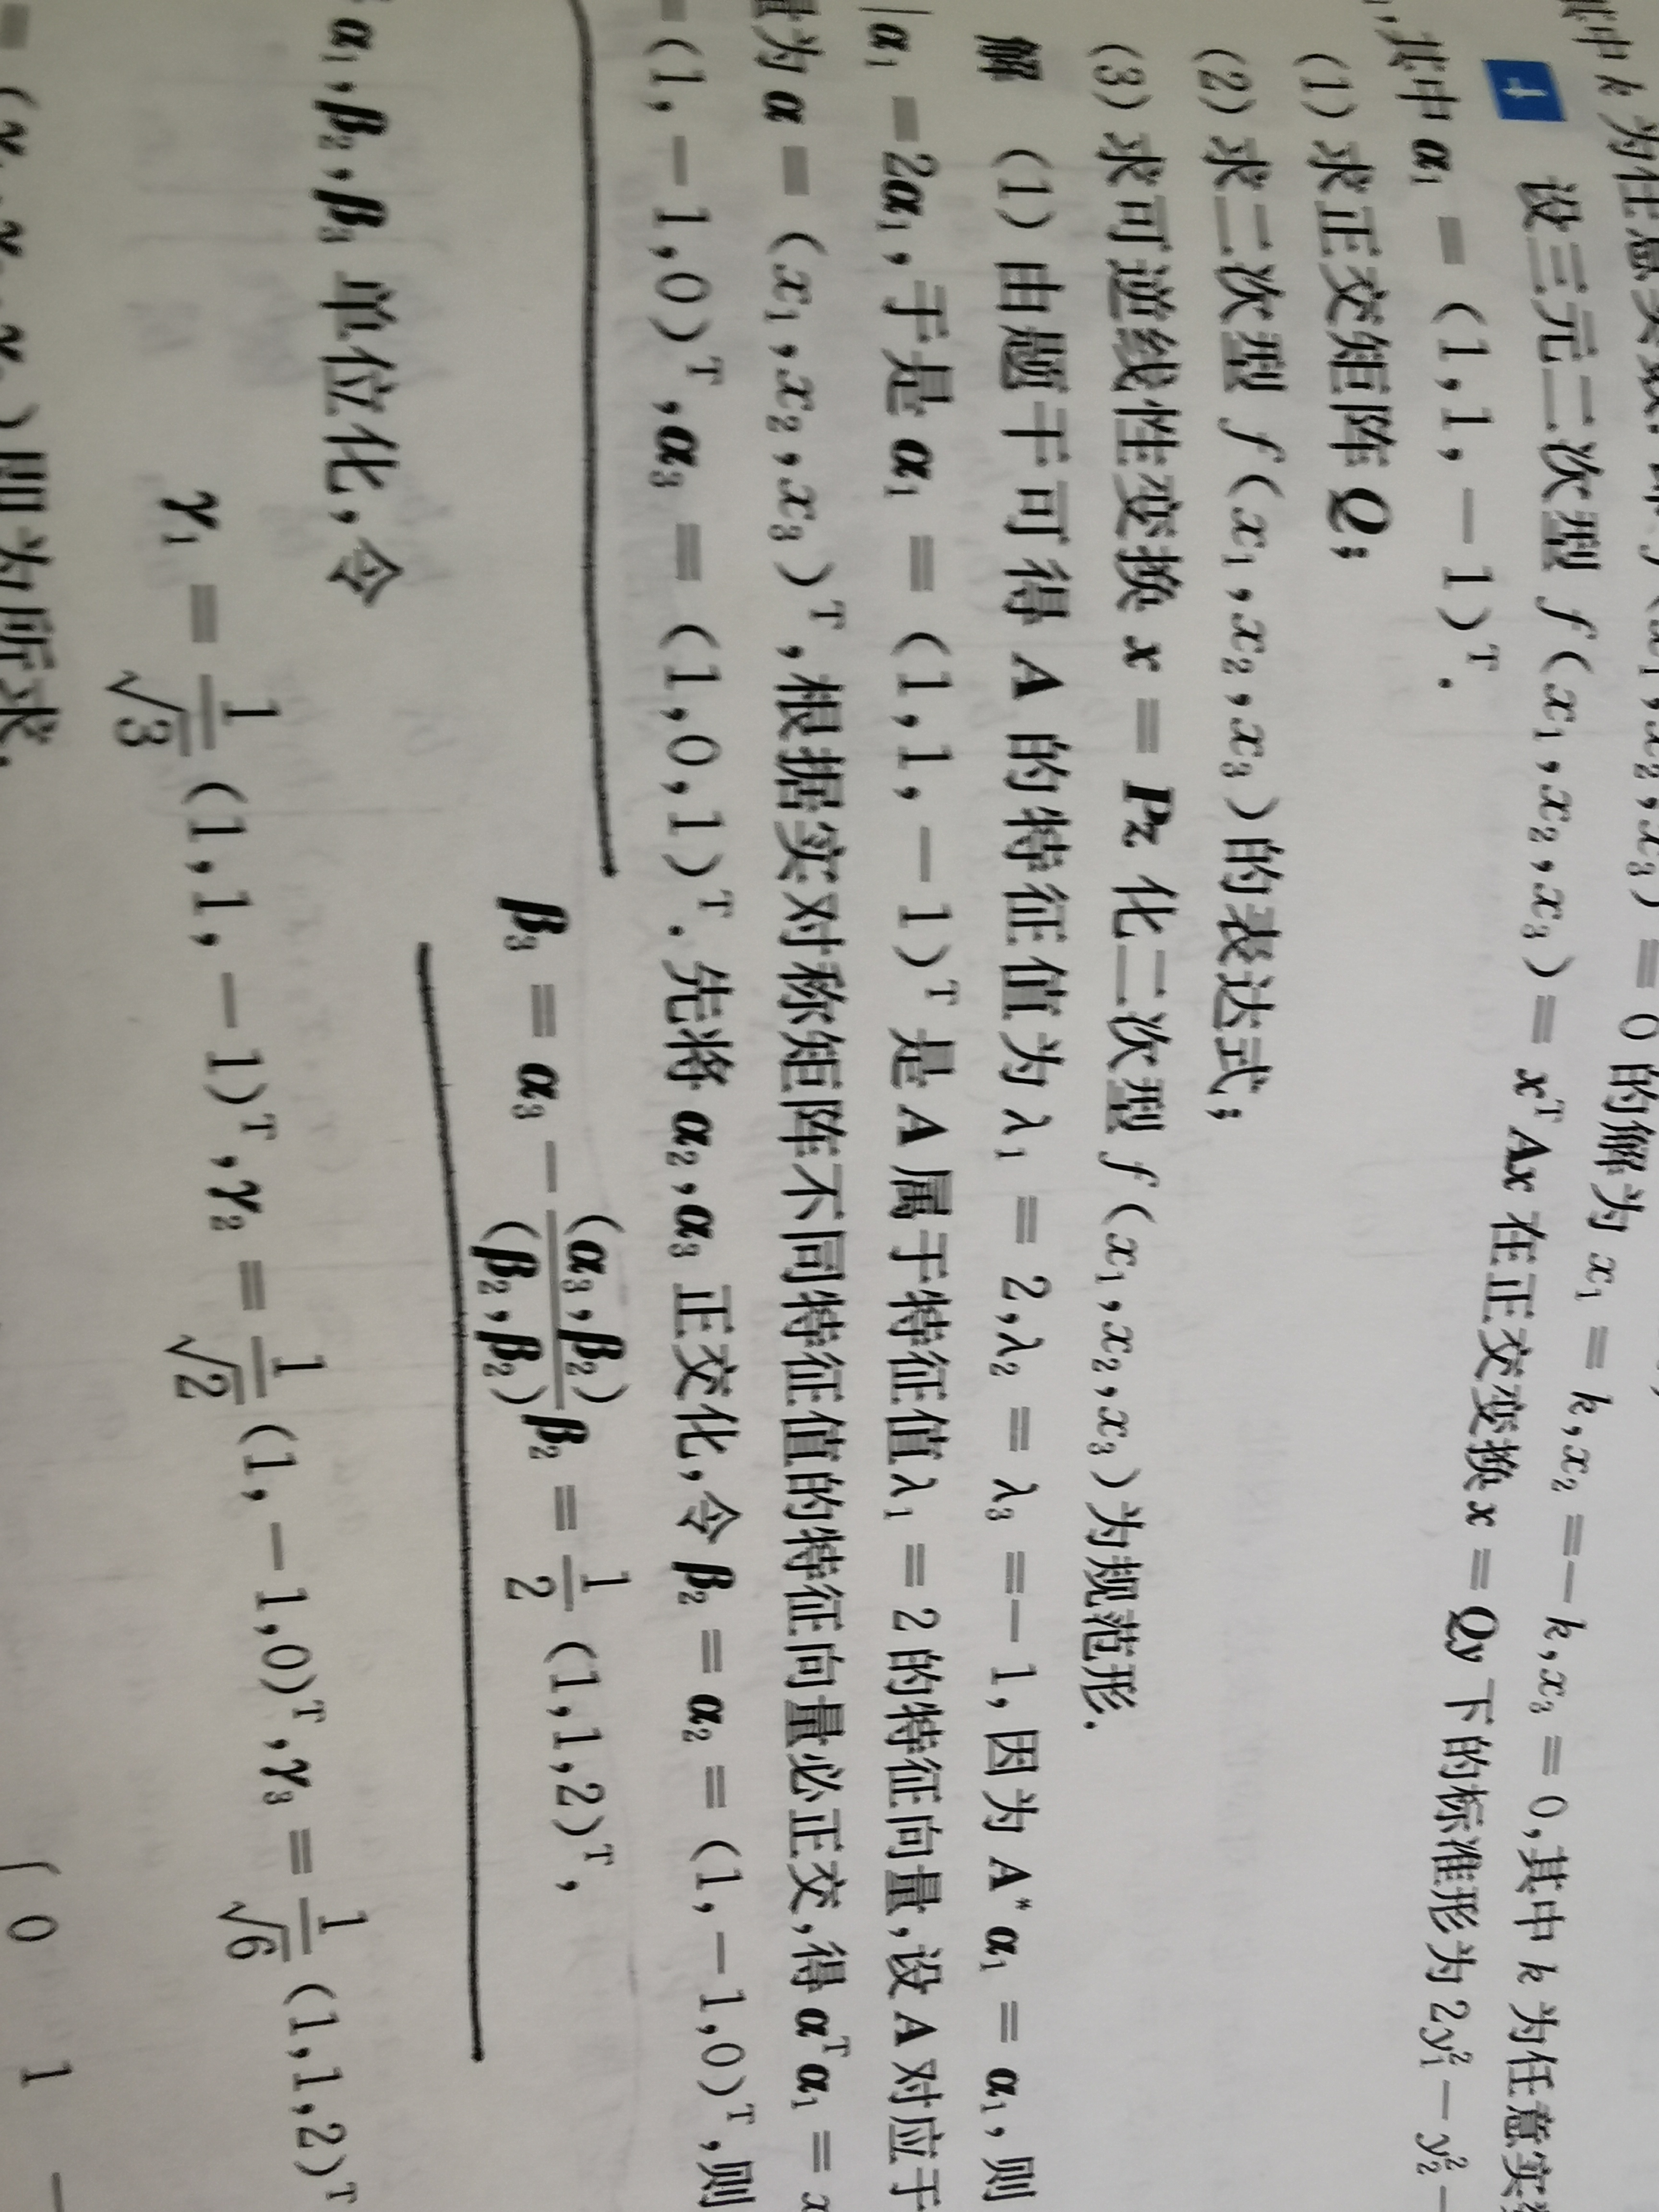 中 k 为任意实数.即 f(x₁,x₂,x₃) = 0 的解为 x₁ = k,x₂ =- k,x₃ = 0,其中 k 为任意实
设三元二次型 f(x₁,x₂,x₃) = xᵀAx 在正交变换 x = Qy 下的标准形为 2y₁² - y₂² -
,其中 α₁ = (1,1,-1)ᵀ.
(1) 求正交矩阵 Q;
(2) 求二次型 f(x₁,x₂,x₃)的表达式;
(3) 求可逆线性变换 x = Pz 化二次型 f(x₁,x₂,x₃)为规范形.
解 (1) 由题干可得 A 的特征值为 λ₁ = 2,λ₂ = λ₃ =- 1,因为 A*α₁ = α₁,则
|α₁ = 2α₁,于是 α₁ = (1,1,-1)ᵀ 是 A 属于特征值 λ₁ = 2 的特征向量,设 A 对应于
量为 α = (x₁,x₂,x₃)ᵀ,根据实对称矩阵不同特征值的特征向量必正交,得 αᵀα₁ = x
= (1,-1,0)ᵀ,α₃ = (1,0,1)ᵀ.先将 α₂,α₃ 正交化,令 β₂ = α₂ = (1,-1,0)ᵀ,则
β₃ = α₃ - (α₃,β₂)/(β₂,β₂) β₂ = 1/2 (1,1,2)ᵀ,
α₁,β₂,β₃ 单位化,令
γ₁ = 1/√3 (1,1,-1)ᵀ,γ₂ = 1/√2 (1,-1,0)ᵀ,γ₃ = 1/√6 (1,1,2)ᵀ
即为所求.
0 1